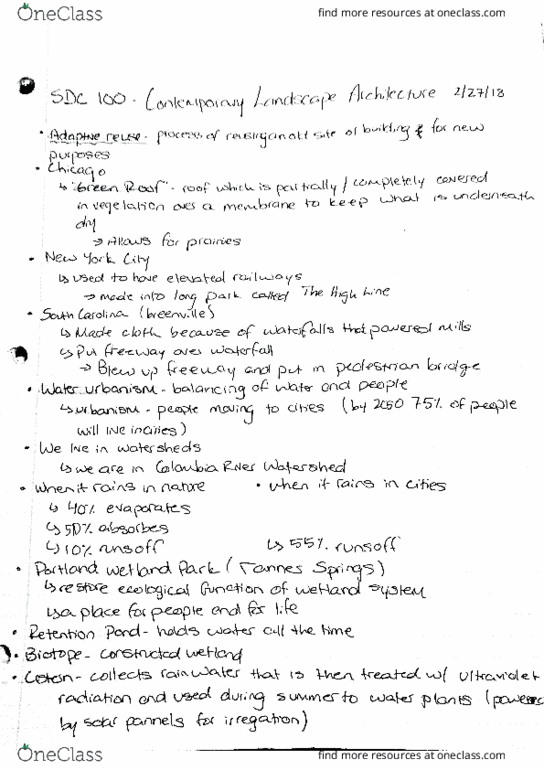 OneClass
find more resources at oneclass.com
SDC 100 - Contemporary Landscape Architecture 2/27/18
• Adaptive reuse - process of reusing an old site or building & for new
purposes
• Chicago
↳ "Green Roof" - roof which is partially / completely covered
in vegelation over a membrane to keep what is underneath
dry
→ Allows for prairies
• New York City
↳ used to have elevated railways
→ made into long park called The High Line
• South Carolina (Greenville)
↳ Made cloth because of waterfalls that powered mills
↳ Put freeway over waterfall
→ Blew up freeway and put in pedestrian bridge
• Water urbanism - balancing of water and people
↳ urbanism - people moving to cities (by 2050 75% of people
will live in cities)
• We live in watersheds
↳ we are in Colombia River Watershed
• When it rains in nature • when it rains in cities
↳ 40% evaporates
↳ 50% absorbes
↳ 10% runsoff ↳ 55% runsoff
• Portland Wetland Park (Tanner Springs)
↳ restore ecological function of wetland system
↳ a place for people and for life
• Retention Pond - holds water all the time
• Biotope - constructed wetland
• Cistern - collects rainwater that is then treated w/ ultraviolet
radiation and used during summer to water plants (powered
by solar pannels for irregation)
OneClass
find more resources at oneclass.com